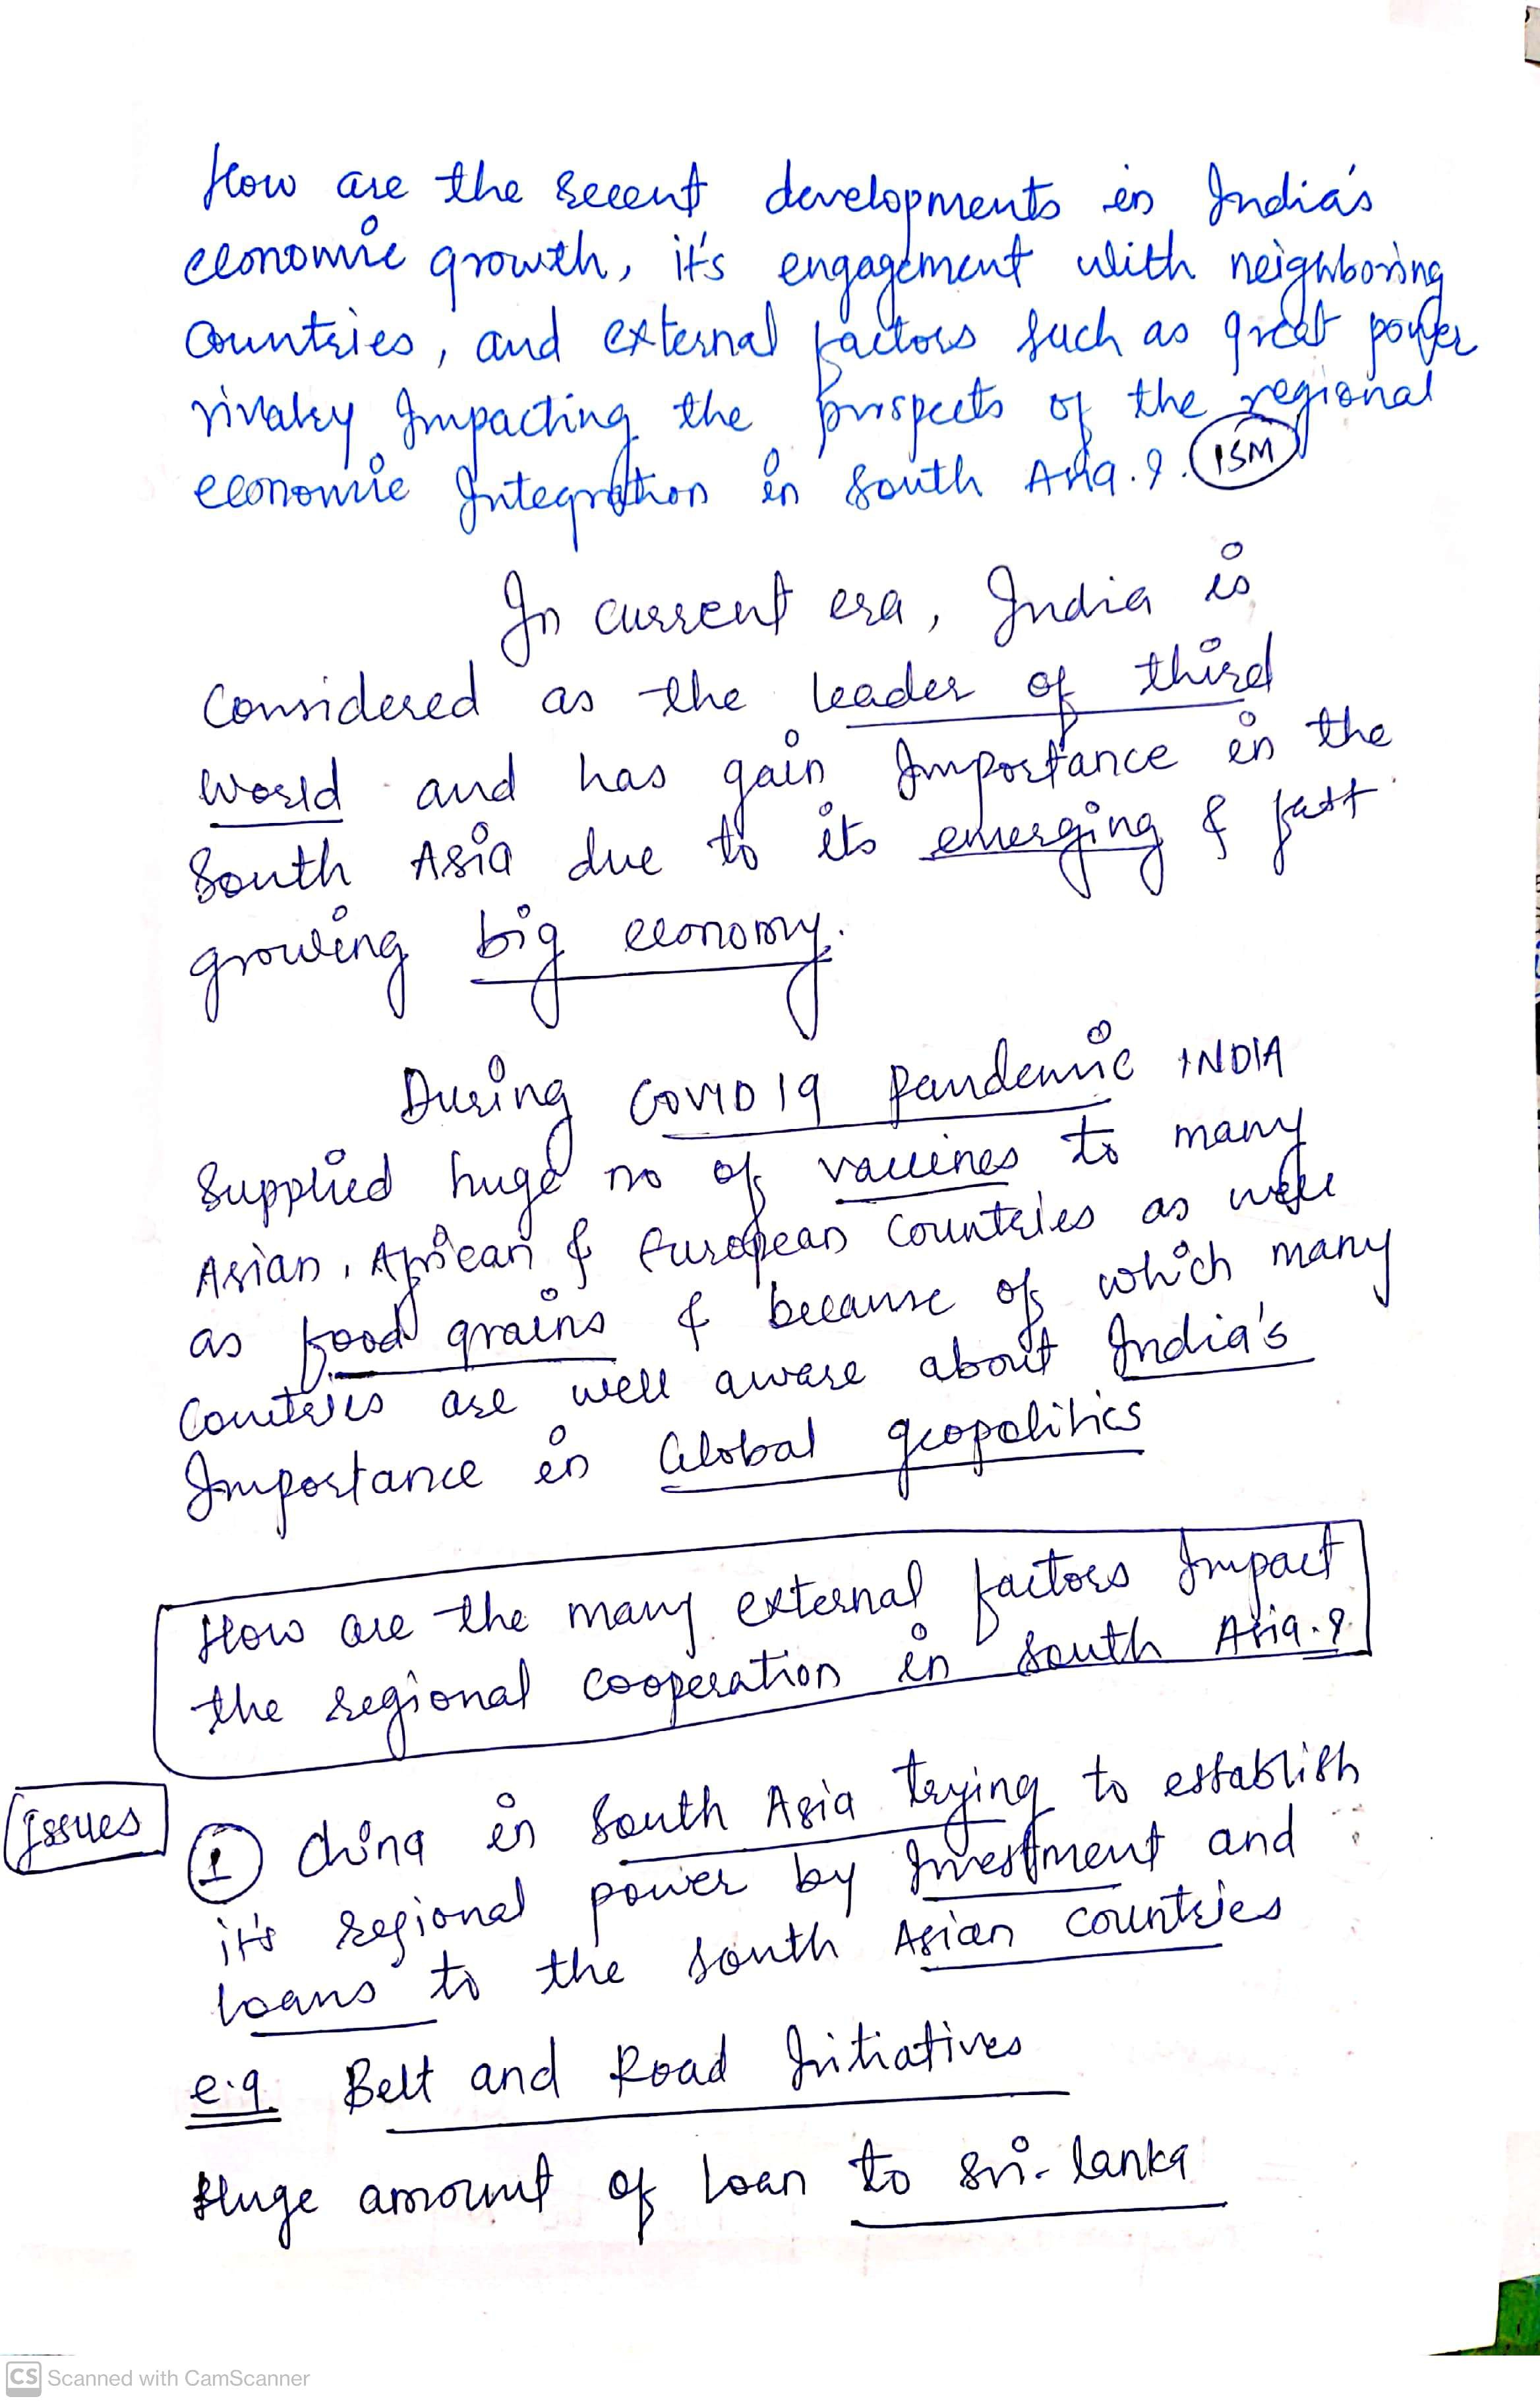 How are the recent developments in India's
economic growth, it's engagement with neighboring
Countries, and external factors such as great power
rivalry Impacting the prospects of the regional
economic Integration in South Asia.? 15M
In current era, India is
Considered as the leader of third
World and has gain Importance in the
South Asia due to its emerging & fast
growing big economy.
During COVID 19 Pandemic INDIA
Supplied huge no of vaccines to many
Asian, African & European Countries as well
as food grains & because of which many
Countries are well aware about India's
Importance in Global geopolitics
How are the many external factors Impact
the regional cooperation in South Asia.?
Issues
1 China in South Asia trying to establish
it's regional power by Investment and
loans to the South Asian countries
e.g. Belt and Road Initiatives
Huge amount of Loan to Sri-lanka
CS Scanned with CamScanner